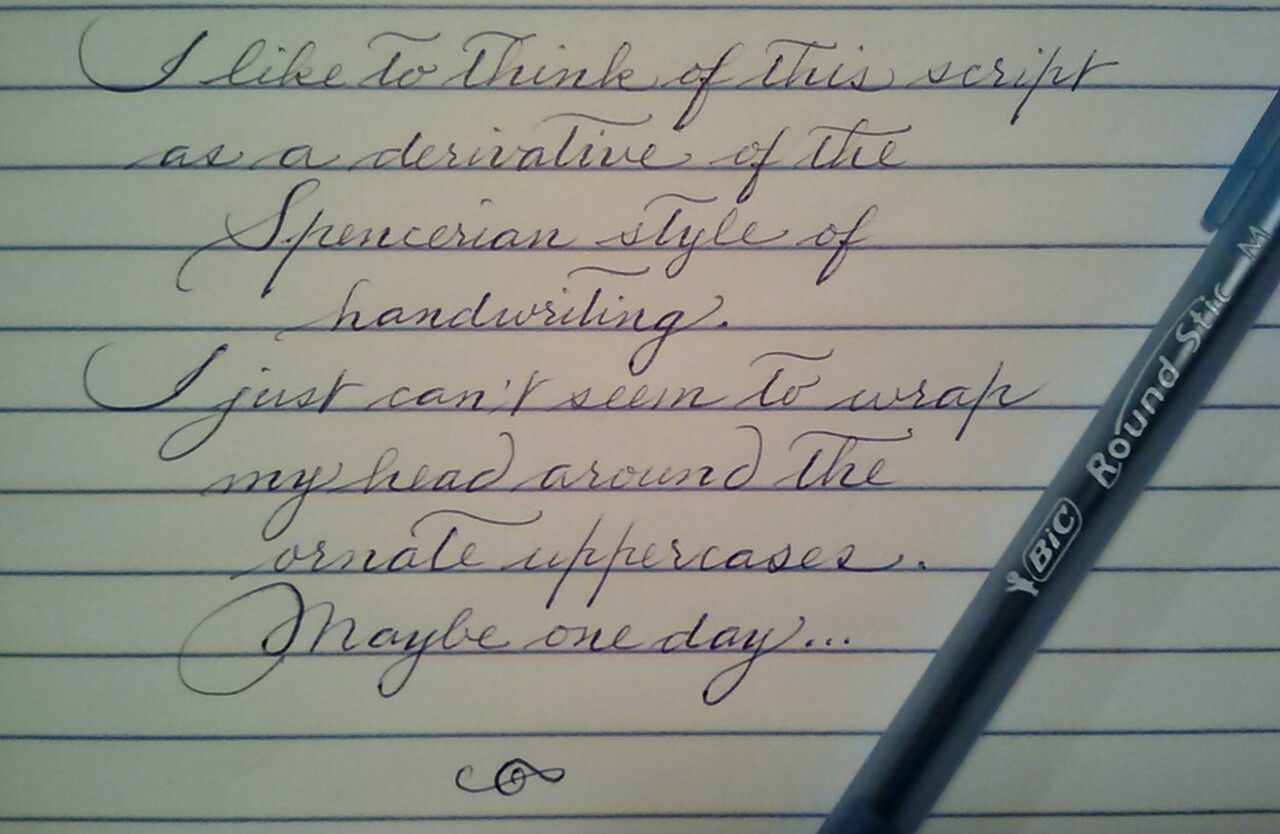 I like to think of this script
as a derivative of the
Spencerian style of
handwriting.
I just can't seem to wrap
my head around the
ornate uppercases.
Maybe one day...
BIC Round Stic M